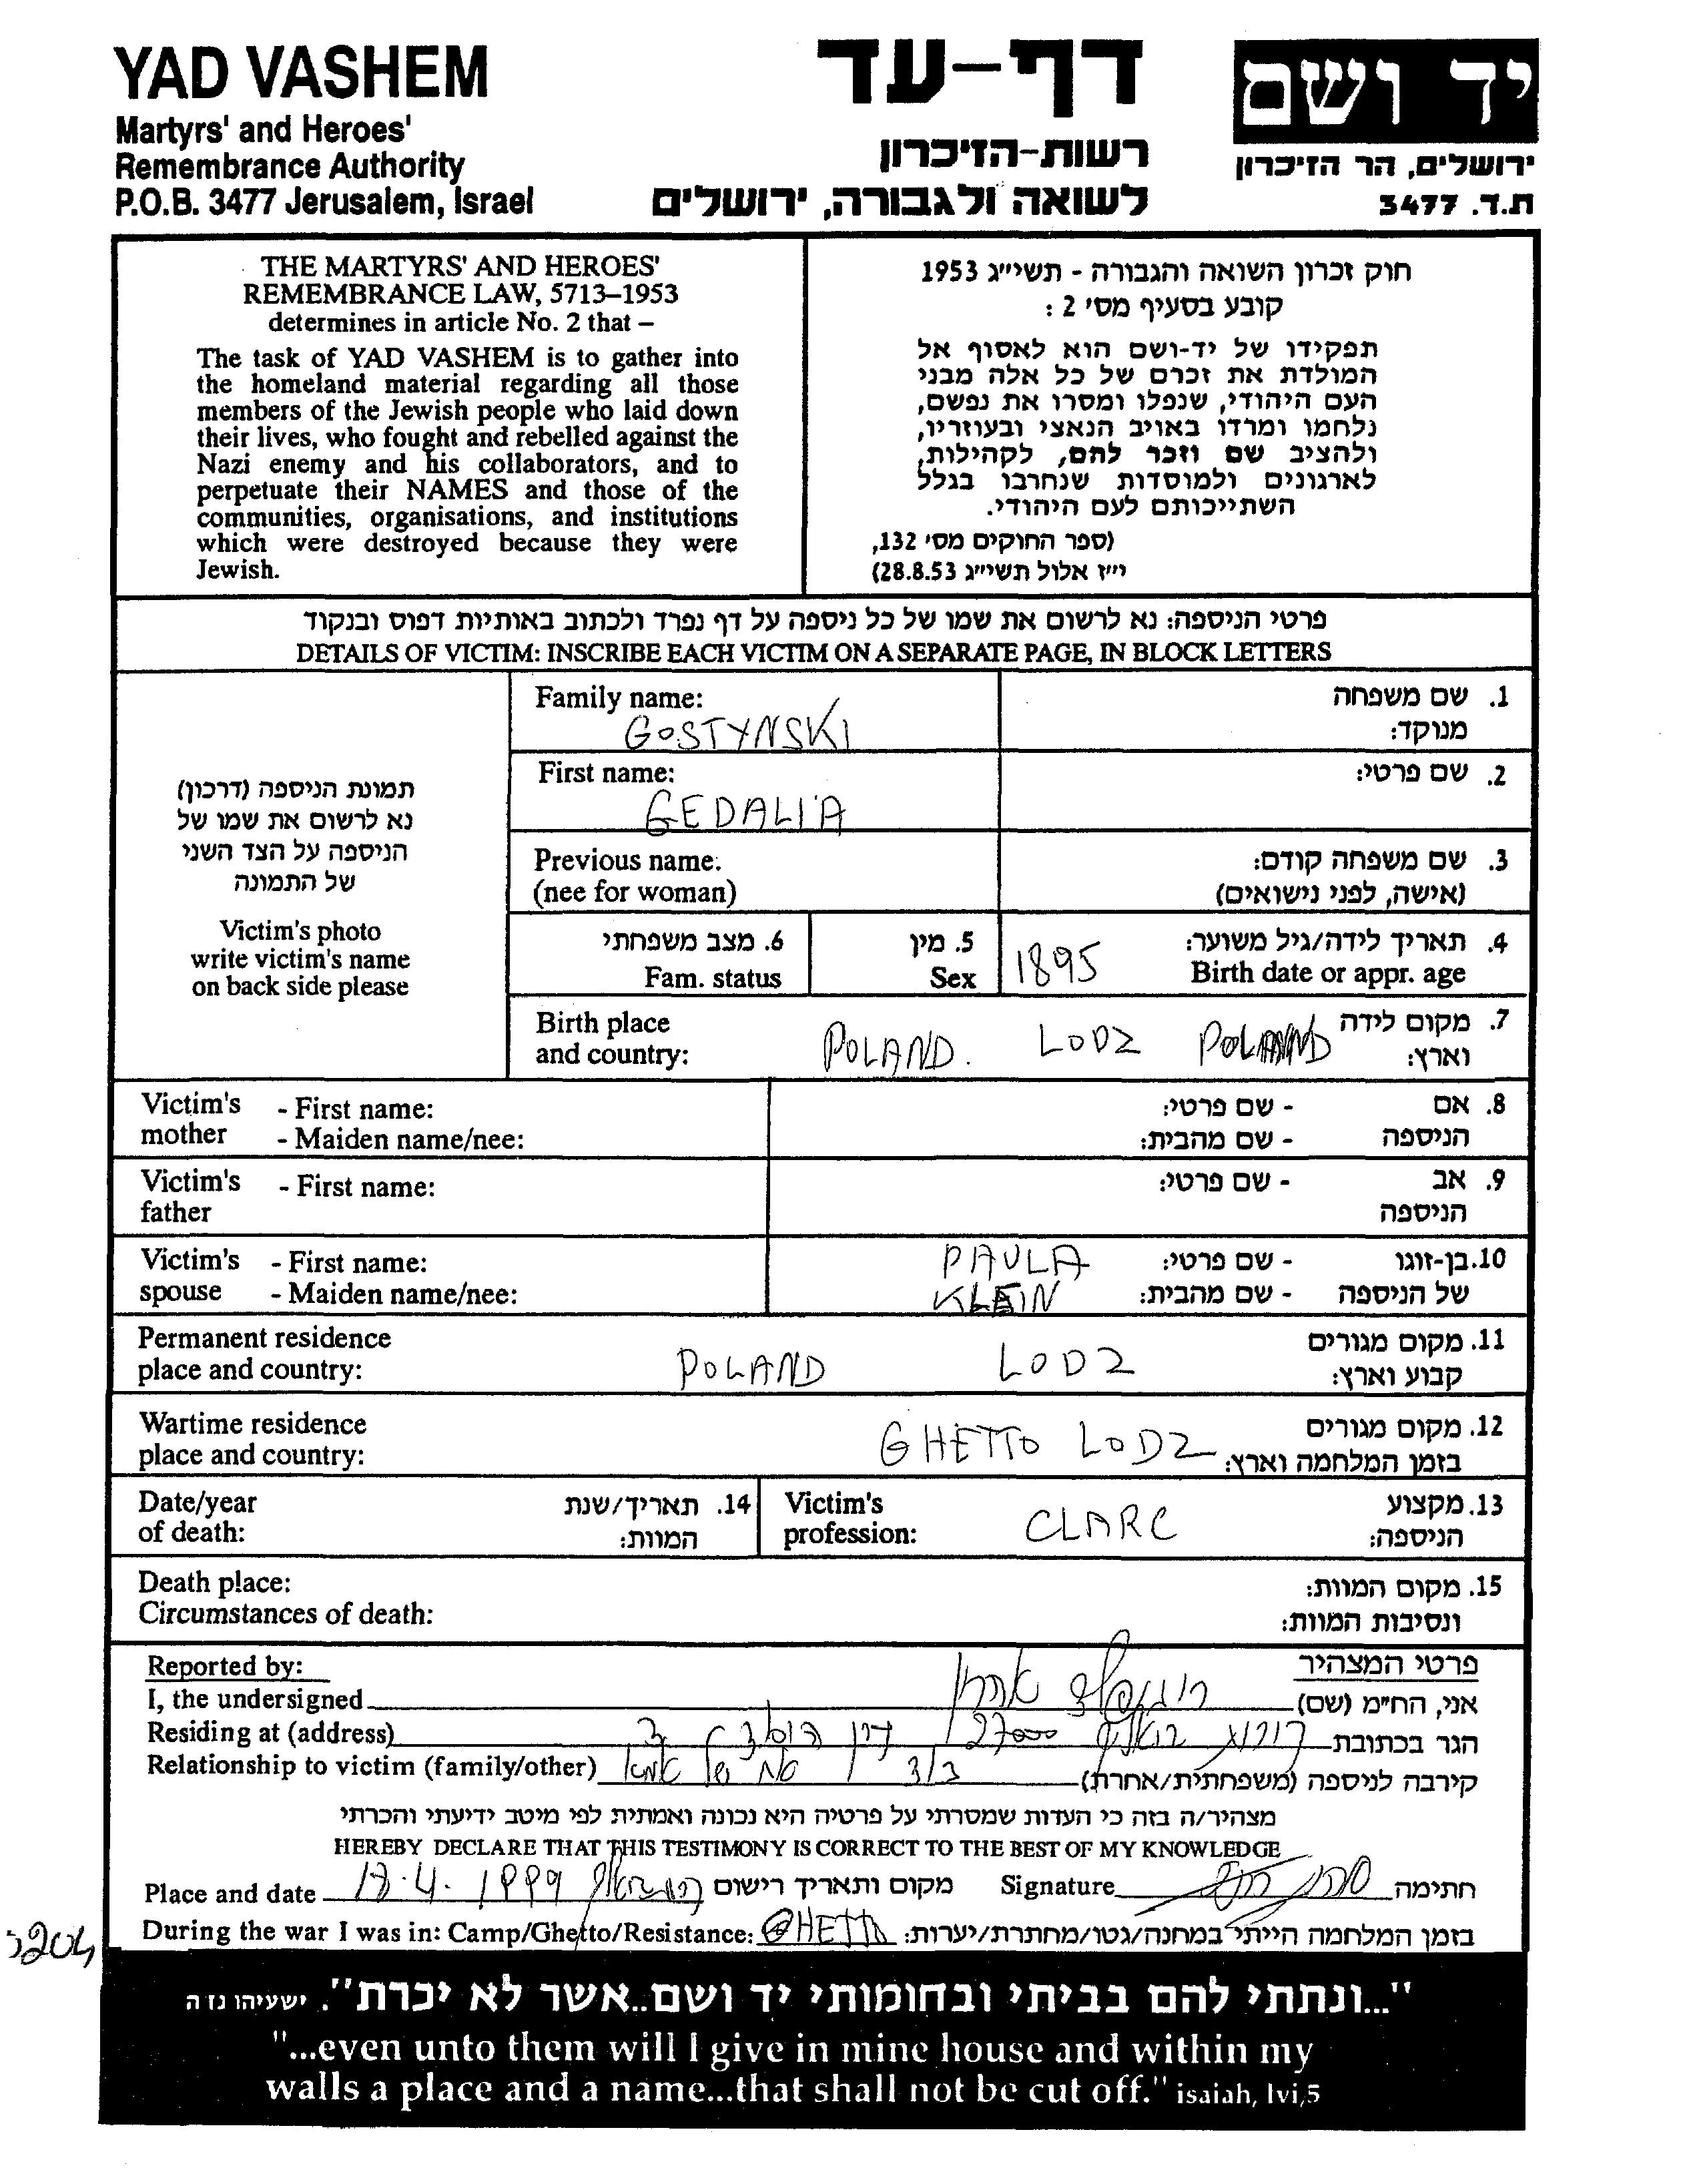 YAD VASHEM
Martyrs' and Heroes'
Remembrance Authority
P.O.B. 3477 Jerusalem, Israel
דף-עד
רשות-הזיכרון
לשואה ולגבורה, ירושלים
יד ושם
ירושלים, הר הזיכרון
ת.ד. 3477
THE MARTYRS' AND HEROES'
REMEMBRANCE LAW, 5713–1953
determines in article No. 2 that –
The task of YAD VASHEM is to gather into
the homeland material regarding all those
members of the Jewish people who laid down
their lives, who fought and rebelled against the
Nazi enemy and his collaborators, and to
perpetuate their NAMES and those of the
communities, organisations, and institutions
which were destroyed because they were
Jewish.
חוק זכרון השואה והגבורה - תשי״ג 1953
קובע בסעיף מס' 2 :
תפקידו של יד-ושם הוא לאסוף אל
המולדת את זכרם של כל אלה מבני
העם היהודי, שנפלו ומסרו את נפשם,
נלחמו ומרדו באויב הנאצי ובעוזריו,
ולהציב שם וזכר להם, לקהילות,
לארגונים ולמוסדות שנחרבו בגלל
השתייכותם לעם היהודי.
(ספר החוקים מס' 132,
י״ז אלול תשי״ג 28.8.53)
פרטי הניספה: נא לרשום את שמו של כל ניספה על דף נפרד ולכתוב באותיות דפוס ובנקוד
DETAILS OF VICTIM: INSCRIBE EACH VICTIM ON A SEPARATE PAGE, IN BLOCK LETTERS
תמונת הניספה (דרכון)
נא לרשום את שמו של
הניספה על הצד השני
של התמונה
Victim's photo
write victim's name
on back side please
Family name: 1. שם משפחה
GOSTYNSKI מנוקד:
First name: 2. שם פרטי:
GEDALIA
Previous name. 3. שם משפחה קודם:
(nee for woman) (אישה, לפני נישואים)
6. מצב משפחתי 5. מין 4. תאריך לידה/גיל משוער:
Fam. status Sex 1895 Birth date or appr. age
Birth place 7. מקום לידה
and country: POLAND. LODZ POLAND וארץ:
Victim's - First name: - שם פרטי: 8. אם
mother - Maiden name/nee: - שם מהבית: הניספה
Victim's - First name: - שם פרטי: 9. אב
father הניספה
Victim's - First name: PAULA - שם פרטי: 10.בן-זוגו
spouse - Maiden name/nee: KLEIN - שם מהבית: של הניספה
Permanent residence 11. מקום מגורים
place and country: POLAND LODZ קבוע וארץ:
Wartime residence 12. מקום מגורים
place and country: GHETTO LODZ בזמן המלחמה וארץ:
Date/year 14. תאריך/שנת Victim's 13. מקצוע
of death: המוות: profession: CLARC הניספה:
Death place: 15. מקום המוות:
Circumstances of death: ונסיבות המוות:
Reported by: פרטי המצהיר
I, the undersigned אני, הח״מ (שם)
Residing at (address) 27000 הגר בכתובת
Relationship to victim (family/other) של קירבה לניספה (משפחתית/אחרת)
מצהיר/ה בזה כי העדות שמסרתי על פרטיה היא נכונה ואמתית לפי מיטב ידיעתי והכרתי
HEREBY DECLARE THAT THIS TESTIMONY IS CORRECT TO THE BEST OF MY KNOWLEDGE
Place and date 1999 מקום ותאריך רישום Signature חתימה
During the war I was in: Camp/Ghetto/Resistance: GHETTO בזמן המלחמה הייתי במחנה/גטו/מחתרת/יערות:
"...ונתתי להם בביתי ובחומותי יד ושם..אשר לא יכרת". ישעיהו נו ה
"...even unto them will I give in mine house and within my
walls a place and a name...that shall not be cut off." isaiah, lvi,5